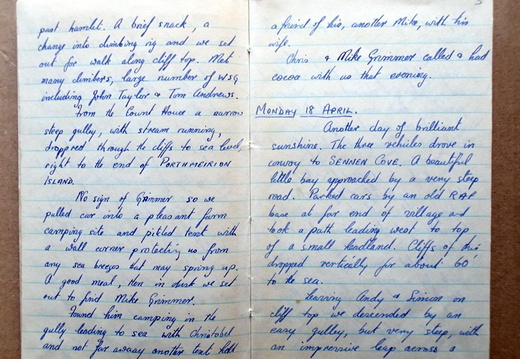 past hamlet. A brief snack, a
change into climbing rig and we set
out for walk along cliff top. Met
many climbers, large number of WSG
including John Taylor & Tom Andrews.
From the Count House a narrow
steep gulley, with stream running,
dropped through the cliffs to sea level
right to the end of PORTHMEIRION
ISLAND.
No sign of Grimmer so we
pulled car into a pleasant farm
camping site and pitched tent with
a wall corner protecting us from
any sea breezes that may spring up.
A good meal, then in dusk we set
out to find Mike Grimmer.
Found him camping in the
gulley leading to sea with Christobel
and not far away another tent with
a friend of his, another Mike, with his
wife.
Chris & Mike Grimmer called & had
cocoa with us that evening.
MONDAY 18 APRIL.
Another day of brilliant
sunshine. The three vehicles drove in
convoy to SENNEN COVE. A beautiful
little bay approached by a very steep
road. Parked cars by an old RAF
base at far end of village and
took a path leading west to top
of a small headland. Cliffs of this
dropped vertically for about 60'
to the sea.
Leaving Andy & Simon on
cliff top we descended by an
easy gulley, but very steep, with
an impressive leap across a